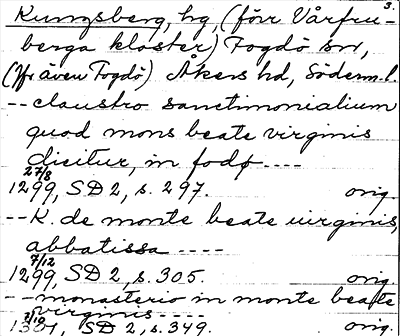 3.
Kungsberg, hg, (förr Vårfru-
berga kloster) Fogdö sn,
(Jfr även Fogdö) Åkers hd, Söderm.l.
-- claustro sanctimonialium
quod mons beate virginis
dicitur, in fodø ----
27/8
1299, SD 2, s. 297. orig.
-- K. de monte beate uirginis,
abbatissa ----
7/12
1299, SD 2, s. 305. orig.
-- monasterio in monte beate
virginis ----
1301, SD 2, s. 349. orig.